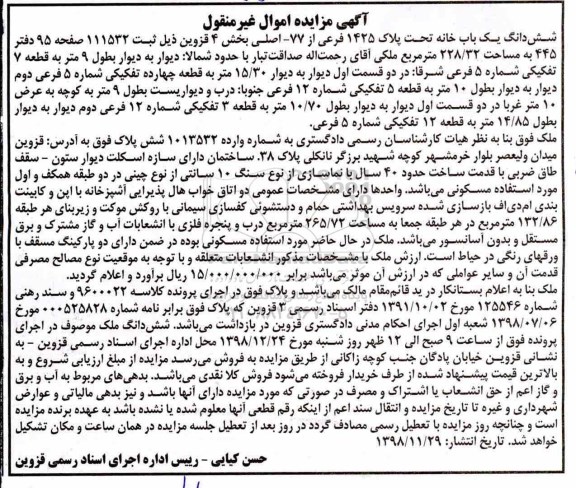 آگهی مزایده اموال غیرمنقول
شش‌دانگ یک باب خانه تحت پلاک ۱۴۲۵ فرعی از ۷۷- اصلی بخش ۴ قزوین ذیل ثبت ۱۱۱۵۳۲ صفحه ۹۵ دفتر
۴۴۵ به مساحت ۲۲۸/۳۲ مترمربع ملکی آقای رحمت‌اله صداقت‌تبار با حدود شمالا: دیوار به دیوار بطول ۹ متر به قطعه ۷
تفکیکی شماره ۵ فرعی شرقا: در دو قسمت اول دیوار به دیوار ۱۵/۳۰ متر به قطعه چهارده تفکیکی شماره ۵ فرعی دوم
دیوار به دیوار بطول ۱۰ متر به قطعه ۵ تفکیکی شماره ۱۲ فرعی جنوبا: درب و دیواریست بطول ۹ متر به کوچه به عرض
۱۰ متر غربا در دو قسمت اول دیوار به دیوار بطول ۱۰/۷۰ متر به قطعه ۳ تفکیکی شماره ۱۲ فرعی دوم دیوار به دیوار
بطول ۱۴/۸۵ متر به قطعه ۱۲ تفکیکی شماره ۵ فرعی.
ملک فوق بنا به نظر هیات کارشناسان رسمی دادگستری به شماره وارده ۱۰۱۳۵۳۲ شش پلاک فوق به آدرس: قزوین
میدان ولیعصر بلوار خرمشهر کوچه شهید برزگر نانکلی پلاک ۳۸. ساختمان دارای سازه اسکلت دیوار ستون - سقف
طاق ضربی با قدمت ساخت حدود ۴۰ سال با نماسازی از نوع سنگ ۱۰ سانتی از نوع چینی در دو طبقه همکف و اول
مورد استفاده مسکونی می‌باشد. واحدها دارای مشخصات عمومی دو اتاق خواب هال پذیرایی آشپزخانه با اپن و کابینت
بندی ام‌دی‌اف بازسازی شده سرویس بهداشتی حمام و دستشوئی کفسازی سیمانی با روکش موکت و زیربنای هر طبقه
۱۳۲/۸۶ مترمربع در هر طبقه جمعا به مساحت ۲۶۵/۷۲ مترمربع درب و پنجره فلزی با انشعابات آب و گاز مشترک و برق
مستقل و بدون آسانسور می‌باشد. ملک در حال حاضر مورد استفاده مسکونی بوده در ضمن دارای دو پارکینگ مسقف با
ورقهای رنگی در حیاط است. ارزش ملک با مشخصات مذکور انشعابات متعلقه و با توجه به موقعیت نوع مصالح مصرفی
قدمت آن و سایر عواملی که در ارزش آن موثر می‌باشد برابر ۱۵/۰۰۰/۰۰۰/۰۰۰ ریال برآورد و اعلام گردید.
ملک بنا به اعلام بستانکار در ید قائم‌مقام مالک می‌باشد و پلاک فوق در اجرای پرونده کلاسه ۹۶۰۰۰۲۲ و سند رهنی
شماره ۱۲۵۵۴۶ مورخ ۱۳۹۱/۱۰/۰۲ دفتر اسناد رسمی ۳ قزوین که پلاک فوق برابر نامه شماره ۰۰۰۵۲۵۸۲۸ مورخ
۱۳۹۸/۰۷/۰۶ شعبه اول اجرای احکام مدنی دادگستری قزوین در بازداشت می‌باشد. شش‌دانگ ملک موصوف در اجرای
پرونده فوق از ساعت ۹ صبح الی ۱۲ ظهر روز شنبه مورخ ۱۳۹۸/۱۲/۲۴ محل اداره اجرای اسناد رسمی قزوین - به
نشانی قزوین خیابان پادگان جنب کوچه زاکانی از طریق مزایده به فروش می‌رسد مزایده از مبلغ ارزیابی شروع و به
بالاترین قیمت پیشنهاد شده از طرف خریدار فروخته می‌شود فروش کلا نقدی می‌باشد. بدهی‌های مربوط به آب و برق
و گاز اعم از حق انشعاب یا اشتراک و مصرف در صورتی که مورد مزایده دارای آنها باشد و نیز بدهی مالیاتی و عوارض
شهرداری و غیره تا تاریخ مزایده و انتقال سند اعم از اینکه رقم قطعی آنها معلوم شده یا نشده باشد به عهده برنده مزایده
است و چنانچه روز مزایده با تعطیل رسمی مصادف گردد در روز بعد از تعطیل جلسه مزایده در همان ساعت و مکان تشکیل
خواهد شد. تاریخ انتشار: ۱۳۹۸/۱۱/۲۹
حسن کیایی - رییس اداره اجرای اسناد رسمی قزوین